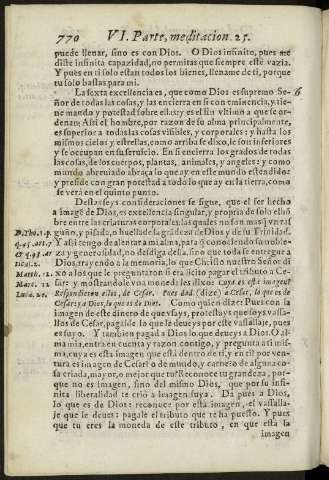 770 VI. Parte, meditacion. 25.
puede llenar, sino es con Dios. O Dios infinito, pues me
diste infinita capazidad, no permitas que siempre esté vazia.
Y pues en ti solo estan todos los bienes, lléname de ti, porque
tu solo bastas para mi.
La sexta excellencia es, que como Dios es supremo Se- 6
ñor de todas las cosas, y las encierra en si con eminencia, y tie-
ne mando y potestad sobre ellas: y es su fin vltimo a que se or-
denan: Assi el hombre, por razon de su alma principalmente,
es superior a todas las cosas visibles, y corporales: y hasta los
mismos cielos y estrellas, como arriba se dixo, le son inferiores
y se ocupan en su seruicio. En si encierra los grados de todas
las cosas, de los cuerpos, plantas, animales, y angeles: y como
mundo abreuiado abraça lo que ay en este mundo estendido:
y preside con gran potestad a todo lo que ay en la tierra, como
se verá en el quinto punto.
Destas seys consideraciones se sigue, que el ser hecho
a imagē de Dios, es excellencia singular, y propria de solo el hō
bre entre las criaturas corporales, las quales no son mas que vn ras
D. Tho. 1. p.
guño, y pisada, o huella de la grādeza de Dios y de su Trinidad.
q. 45. art. 7
Y assi tengo de alentar a mi alma, para que conociendo su noble-
& q. 93. ar
za y generosidad, no desdiga della, sino que toda se entregue a
Dios, trayendo a la memoria, lo que Christo nuestro Señor di
Matth. 22.
xo a los que le preguntaron si era licito pagar el tributo a Ce-
Marc. 12
sar: y mostrandole vna moneda les dixo: Cuya es esta imagen?
Luca. 20.
Respondieron ellos, de Cesar. Pues dad (dize) a Cesar, lo que es de
Cesar; y a Dios, lo que es de Dios. Como quien dize: Pues con la
imagen de este dinero de que vsays, protestays que soys vassa-
llos de Cesar, pagadle lo que le deueys por este vassallaje, pues
es suyo. Y tambien pagad a Dios lo que deueys a Dios. O al-
ma mia, entra en cuenta y razon contigo, y pregunta a ti mis-
ma, cuya es esta imagen que está dentro de ti, y en ti? por ven-
tura es imagen de Cesar? o de mundo, y carne? o de alguna co-
sa criada, mayor, o mejor que tu? Reconoce tu grandeza, por-
que no es imagen, sino del mismo Dios, que por su infi-
nita liberalidad te crió a imagen suya. Da pues a Dios,
lo que es de Dios: reconoce por esta imagen, el vassalla-
je que le deues: pagale el tributo que te ha puesto. Y pues
que tu eres la moneda de este tributo, en que está la
imagen